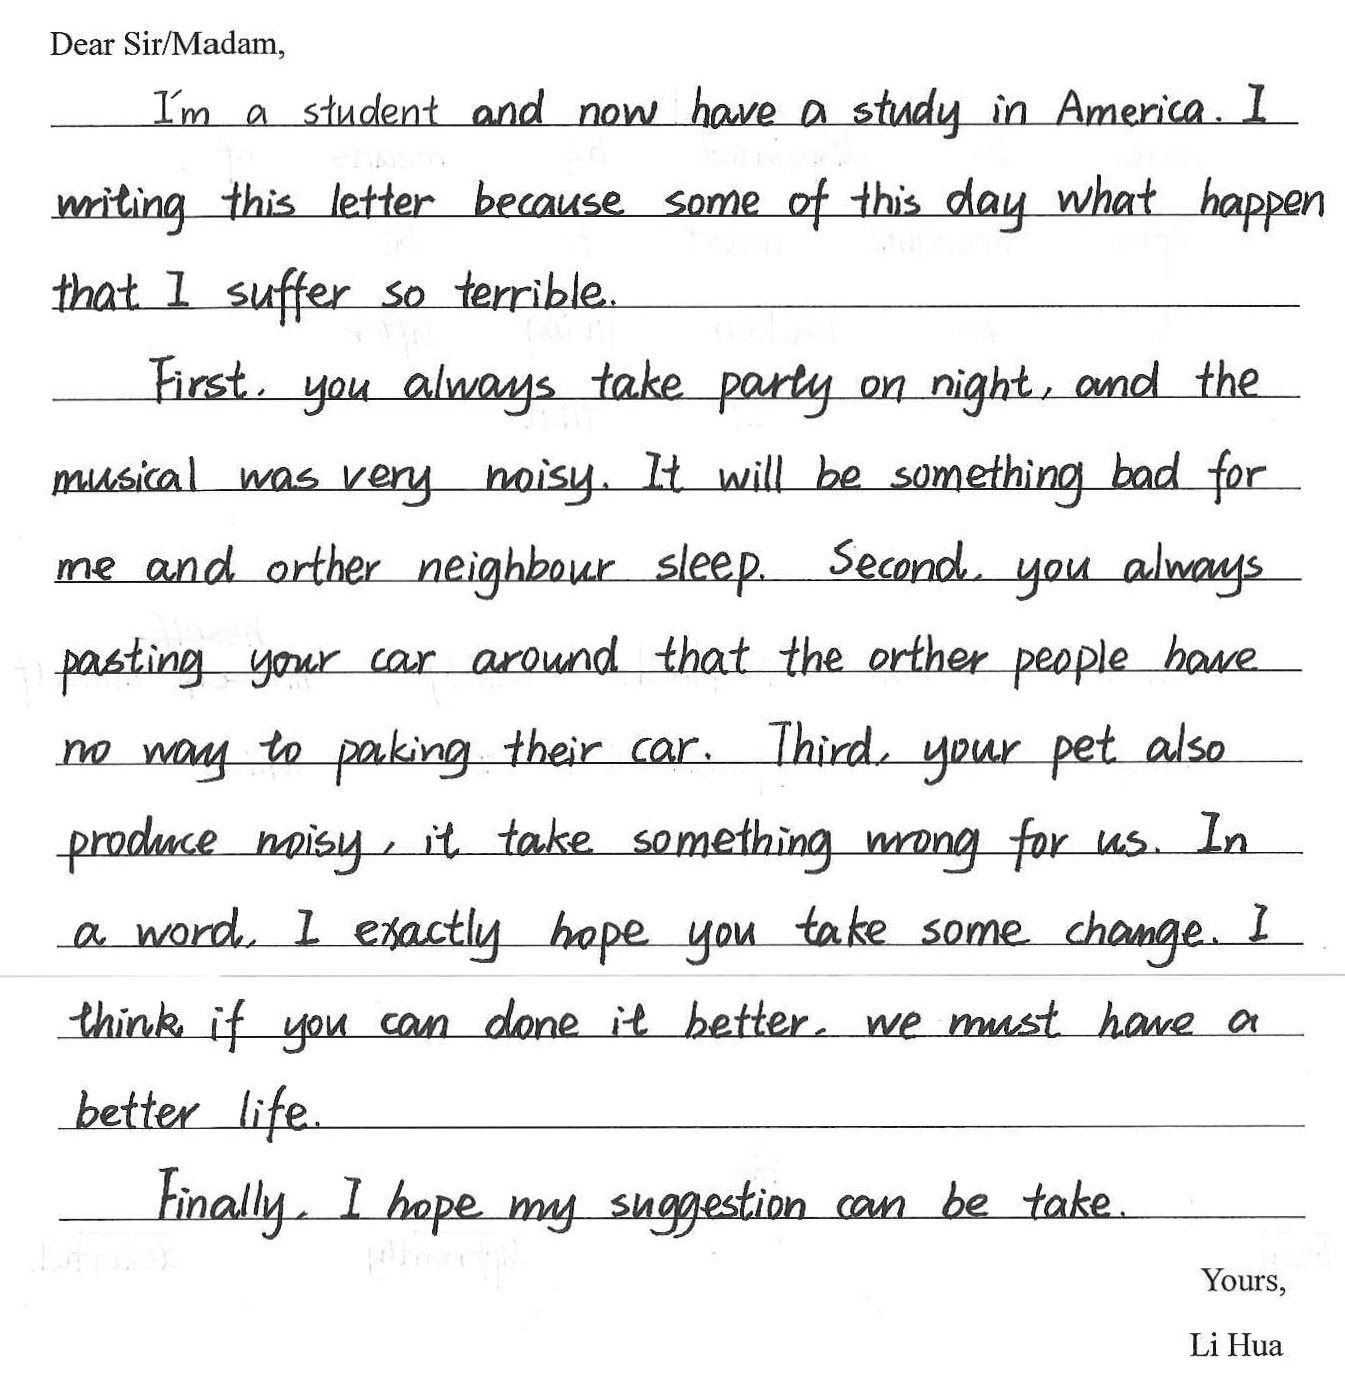 Dear Sir/Madam,
I'm a student and now have a study in America. I
writing this letter because some of this day what happen
that I suffer so terrible.
First, you always take party on night, and the
musical was very noisy. It will be something bad for
me and orther neighbour sleep. Second, you always
pasting your car around that the orther people have
no way to paking their car. Third, your pet also
produce noisy, it take something wrong for us. In
a word, I exactly hope you take some change. I
think if you can done it better, we must have a
better life.
Finally, I hope my suggestion can be take.
Yours,
Li Hua